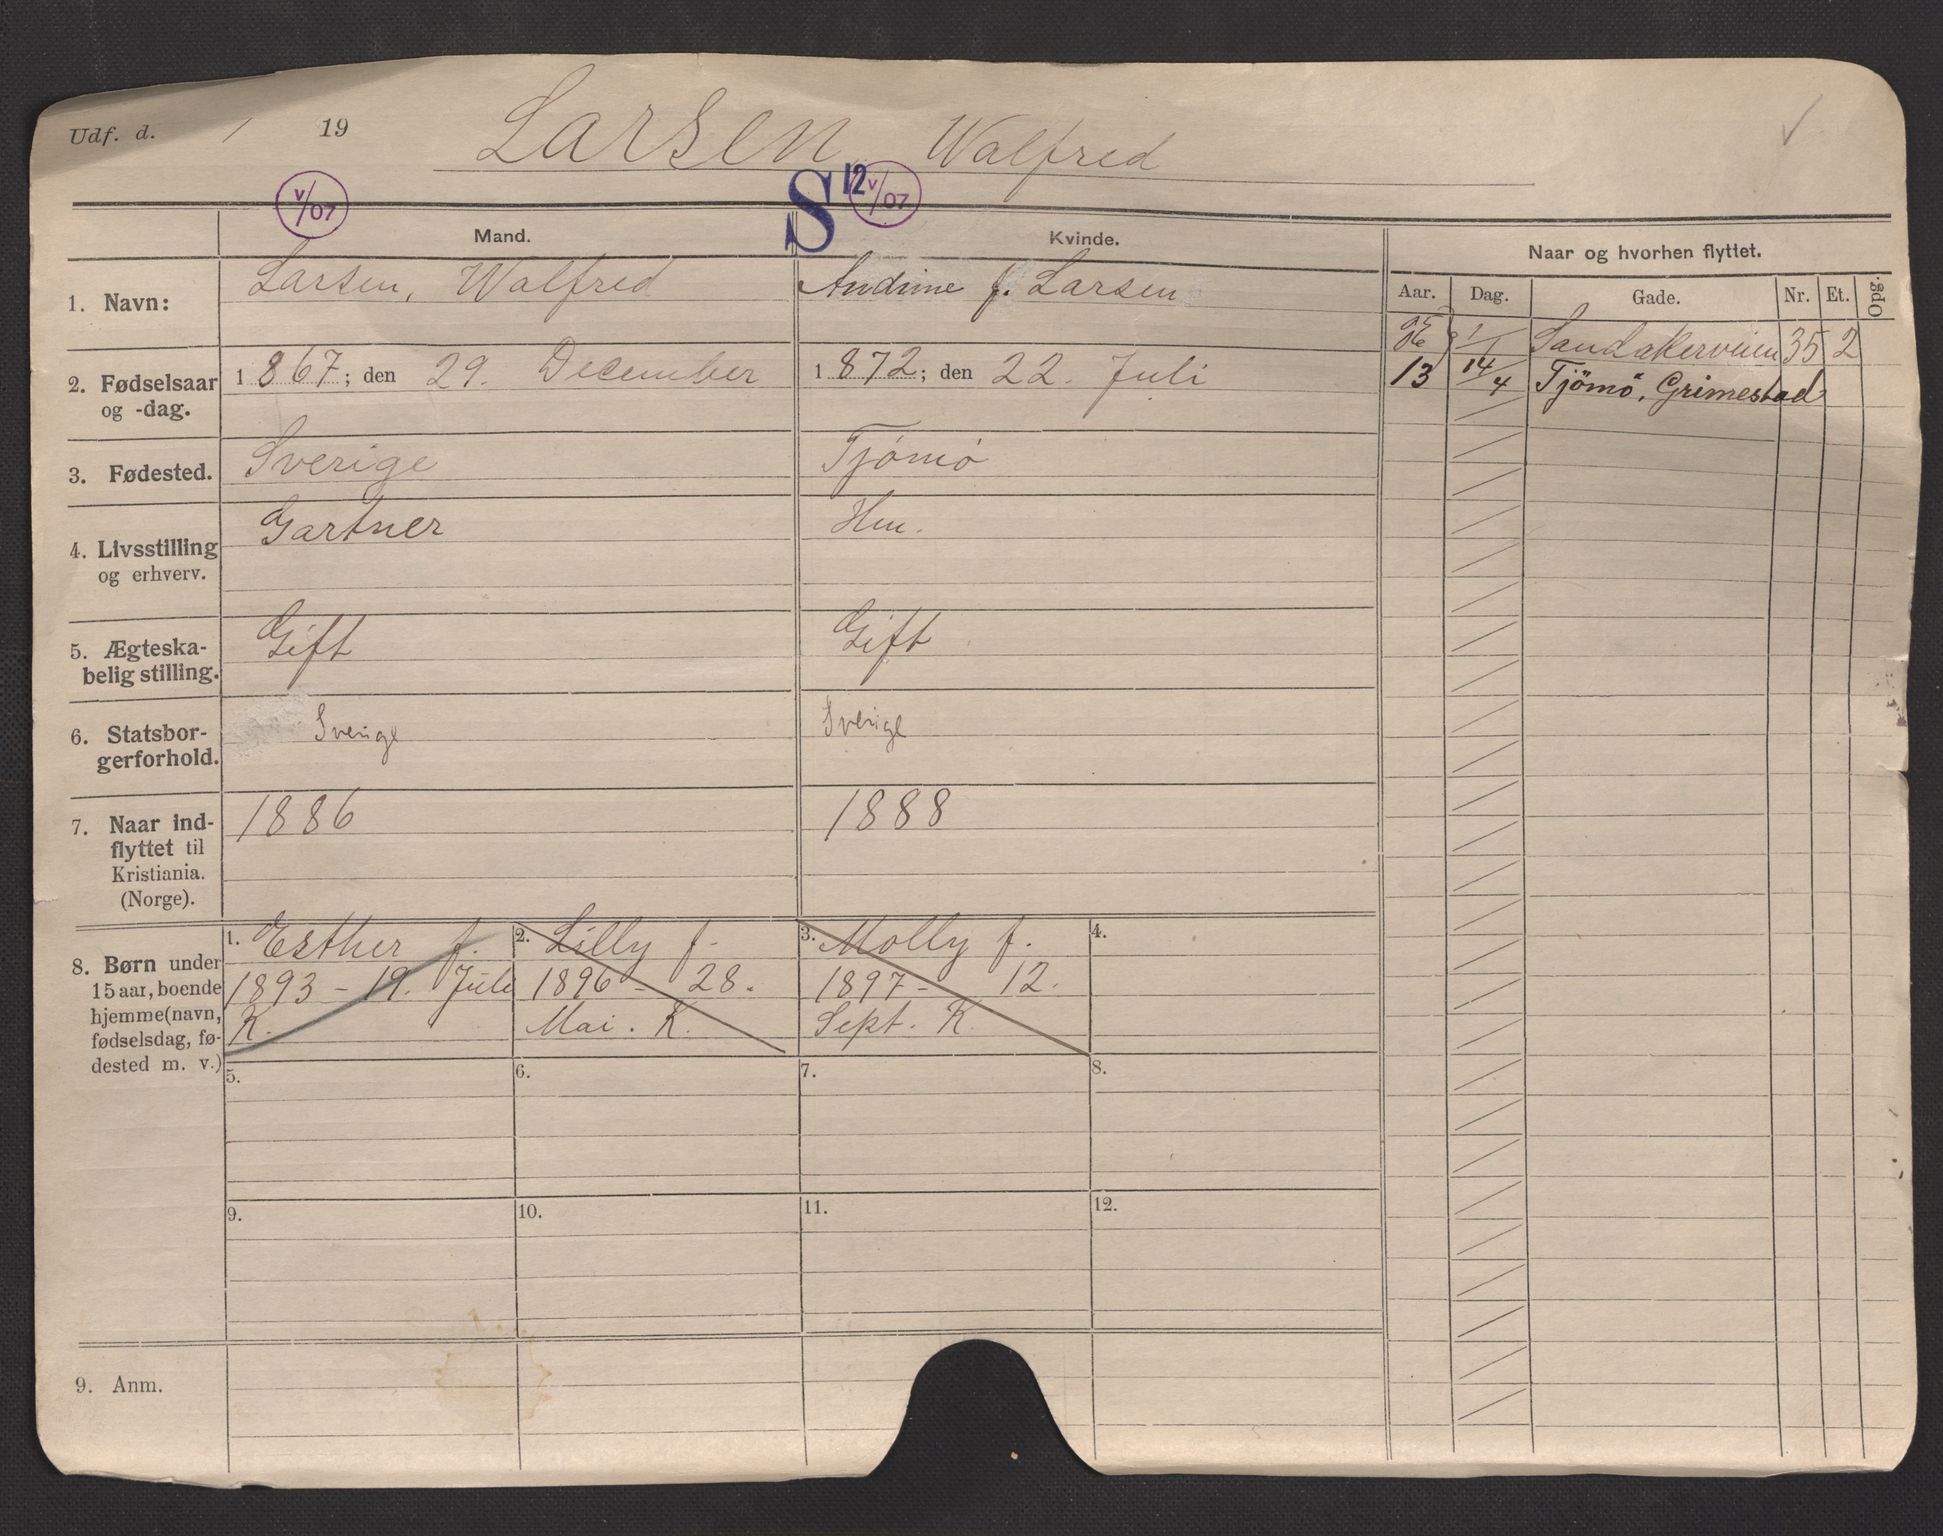 Udf. d. / 19
Larsen, Walfred
V/07
S 12 V/07
Mand. Kvinde. Naar og hvorhen flyttet.
Aar. Dag. Gade. Nr. Et. Opg.
1. Navn: Larsen, Walfred
Andrine f. Larsen
1/1 Sandakerveien 35 2
13 14/4 Tjömö, Grimestad
2. Fødselsaar og -dag.
1867; den 29. December
1872; den 22. Juli
3. Fødested. Sverige
Tjömö
4. Livsstilling og erhverv. Gartner
Hm.
5. Ægteska-
belig stilling. Gift
Gift
6. Statsbor-
gerforhold. Sverige
Sverige
7. Naar ind-
flyttet til
Kristiania.
(Norge).
1886
1888
8. Børn under
15 aar, boende
hjemme (navn,
fødselsdag, fø-
dested m. v.)
1. Esther f.
1893 - 19. Juli
K.
2. Lilly f.
1896 - 28.
Mai. K.
3. Molly f.
1897 - 12.
Sept. K.
4.
5. 6. 7. 8.
9. 10. 11. 12.
9. Anm.